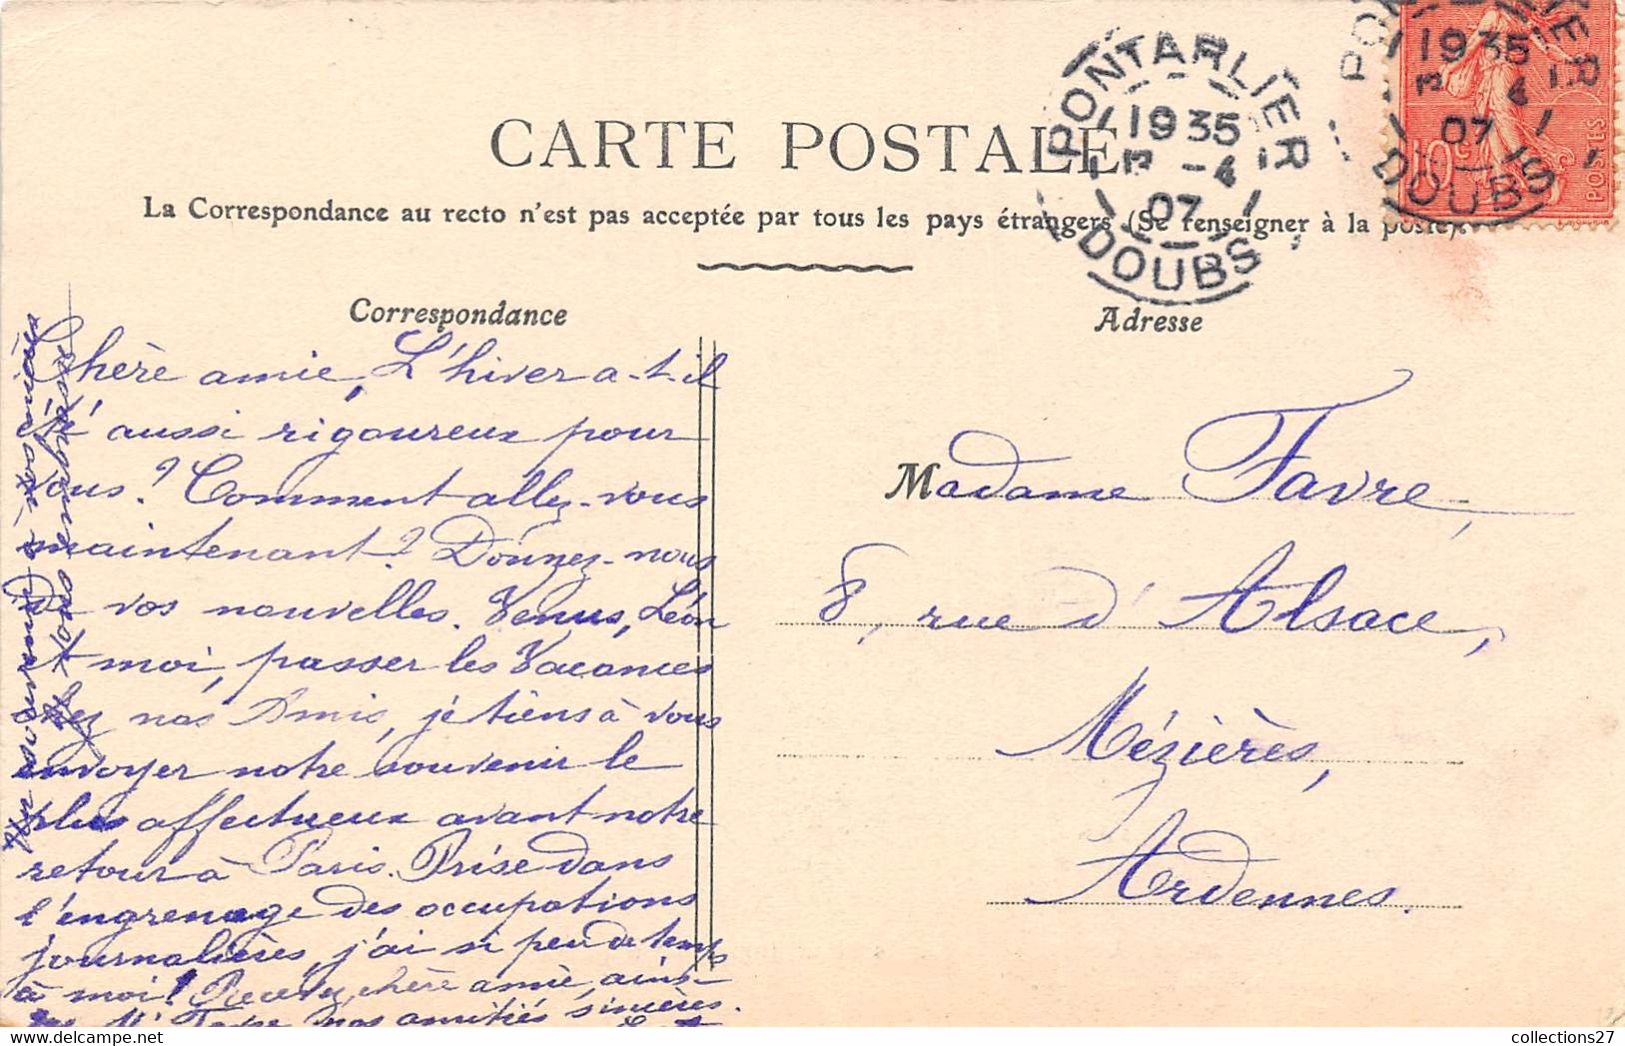 CARTE POSTALE
La Correspondance au recto n'est pas acceptée par tous les pays étrangers (Se renseigner à la poste).
PONTARLIER
1935
3 -4
07
DOUBS
PONTARLIER
1935
3 4
07
DOUBS
10c
POSTES
Correspondance
Adresse
Chère amie, L'hiver a-t-il
été aussi rigoureux pour
vous? Comment allez-vous
maintenant? Donnez-nous
de vos nouvelles. Venus, Léon
et moi, passer les Vacances
chez nos Amis, je tiens à vous
envoyer notre souvenir le
plus affectueux avant notre
retour à Paris. Prise dans
l'engrenage des occupations
journalières, j'ai si peu de temps
à moi! Recevez, chère amie, ainsi
que Mr Favre nos amitiés sincères.
Madame Favre,
8, rue d'Alsace,
Mézières,
Ardennes.
collections27